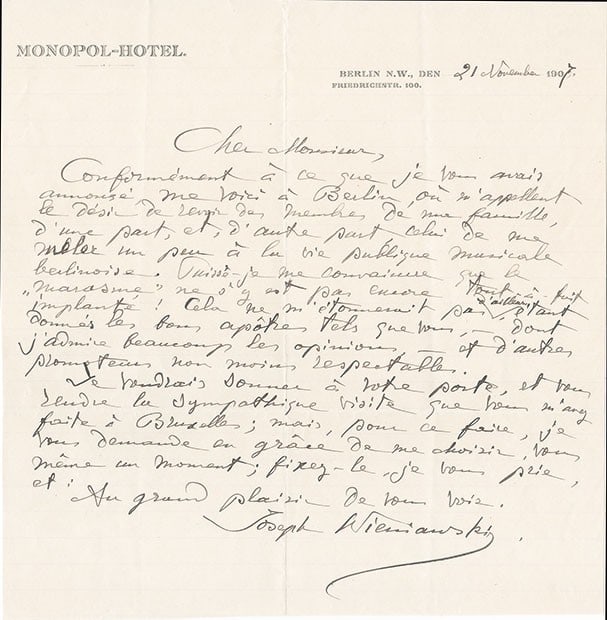 MONOPOL-HOTEL.
BERLIN N.W., DEN 21 November 1907.
FRIEDRICHSTR. 100.
Cher Monsieur,
Conformément à ce que je vous avais
annoncé, me voici à Berlin, où m'appellent
le désir de revoir des membres de ma famille,
d'une part, et, d'autre part celui de me
mêler un peu à la vie publique musicale
berlinoise. Puissé-je me convaincre que le
„marasme" ne s'y est pas encore tout à fait
implanté! Cela ne m'étonnerait pas d'ailleurs, étant
donnés les bons apôtres tels que vous, — dont
j'admire beaucoup les opinions — et d'autres
non moins respectables.
Je voudrais sonner à votre porte, et vous
rendre la sympathique visite que vous m'avez
faite à Bruxelles; mais, pour ce faire, je
vous demande en grâce de me choisir, vous
même un moment; fixez-le, je vous prie,
et:
Au grand plaisir de vous voir.
Joseph Wieniawski.